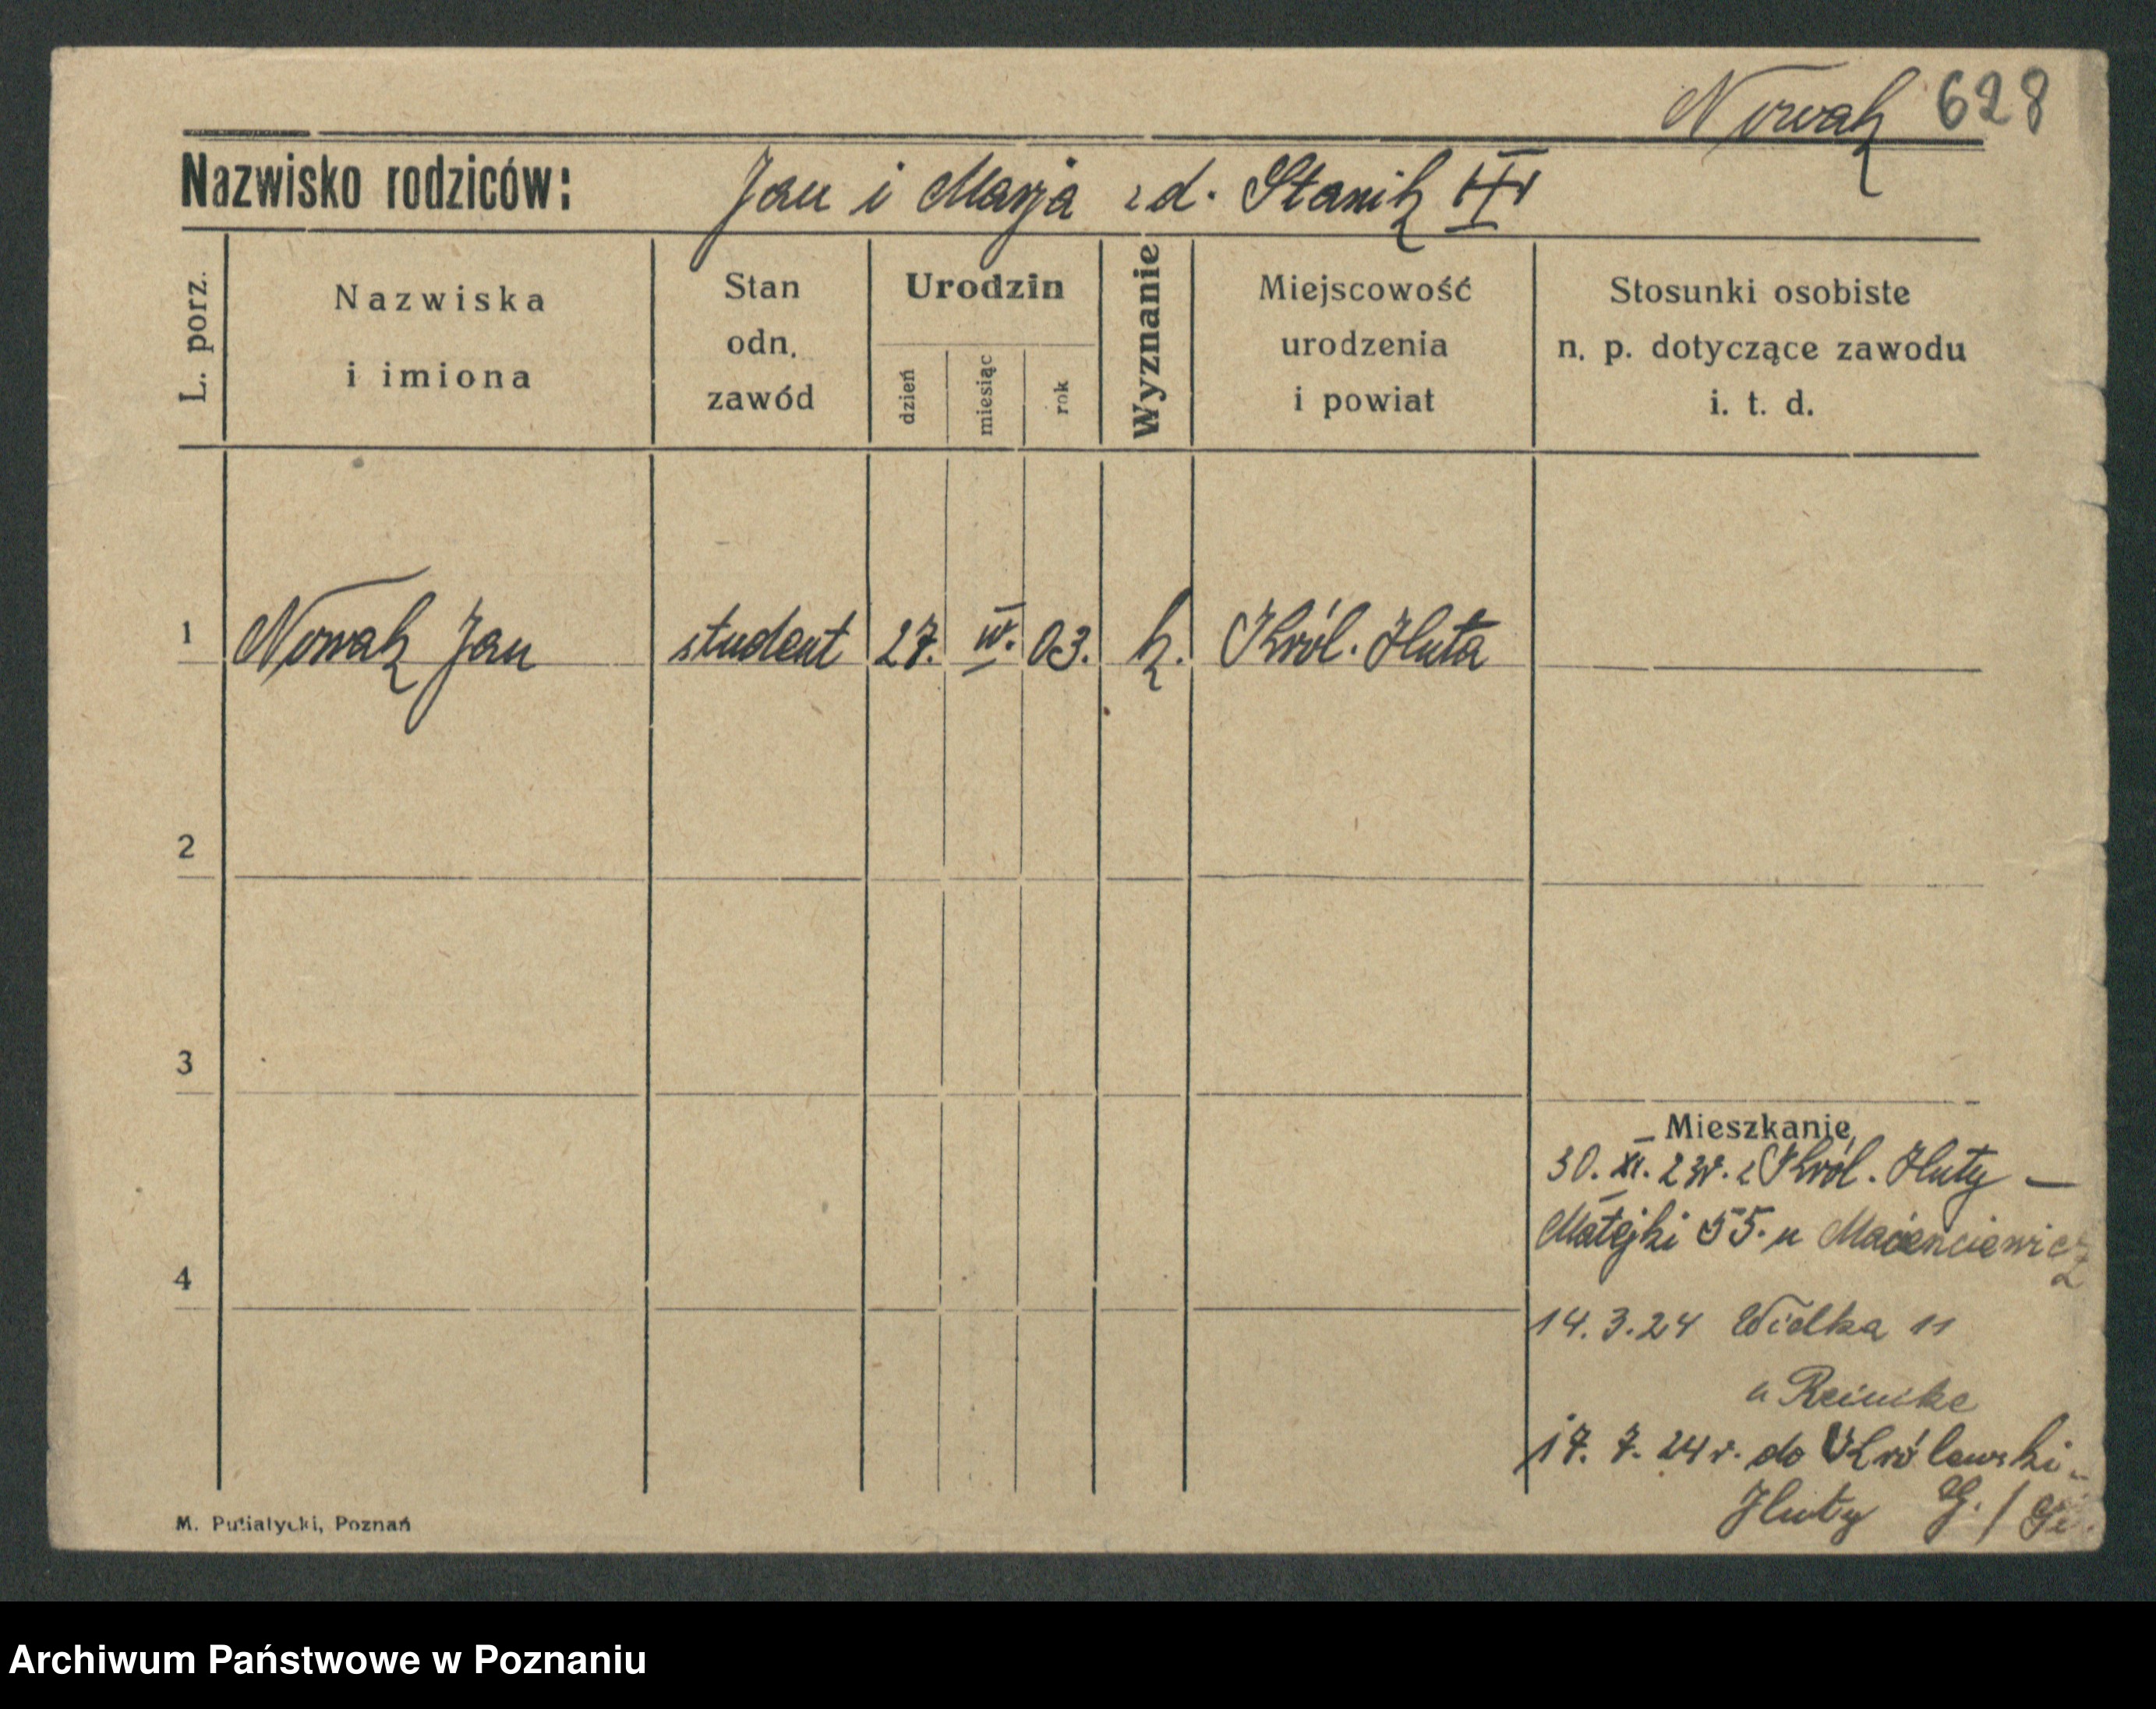 Nowak 628
Nazwisko rodziców: Jan i Marja zd. Stanik
L. porz.
Nazwiska
i imiona
Stan
odn.
zawód
Urodzin
dzień
miesiąc
rok
Wyznanie
Miejscowość
urodzenia
i powiat
Stosunki osobiste
n. p. dotyczące zawodu
i. t. d.
1 Nowak Jan student 27. IV. 03. k. Król. Huta
2
3
4
Mieszkanie
30. XI. 23r. z Król. Huty —
Matejki 55. u
14.3.24 Wielka 11
u Reinike
17. 7. 24 r. do Królewski-
Huty G. /
M. Putiatycki, Poznań
Archiwum Państwowe w Poznaniu